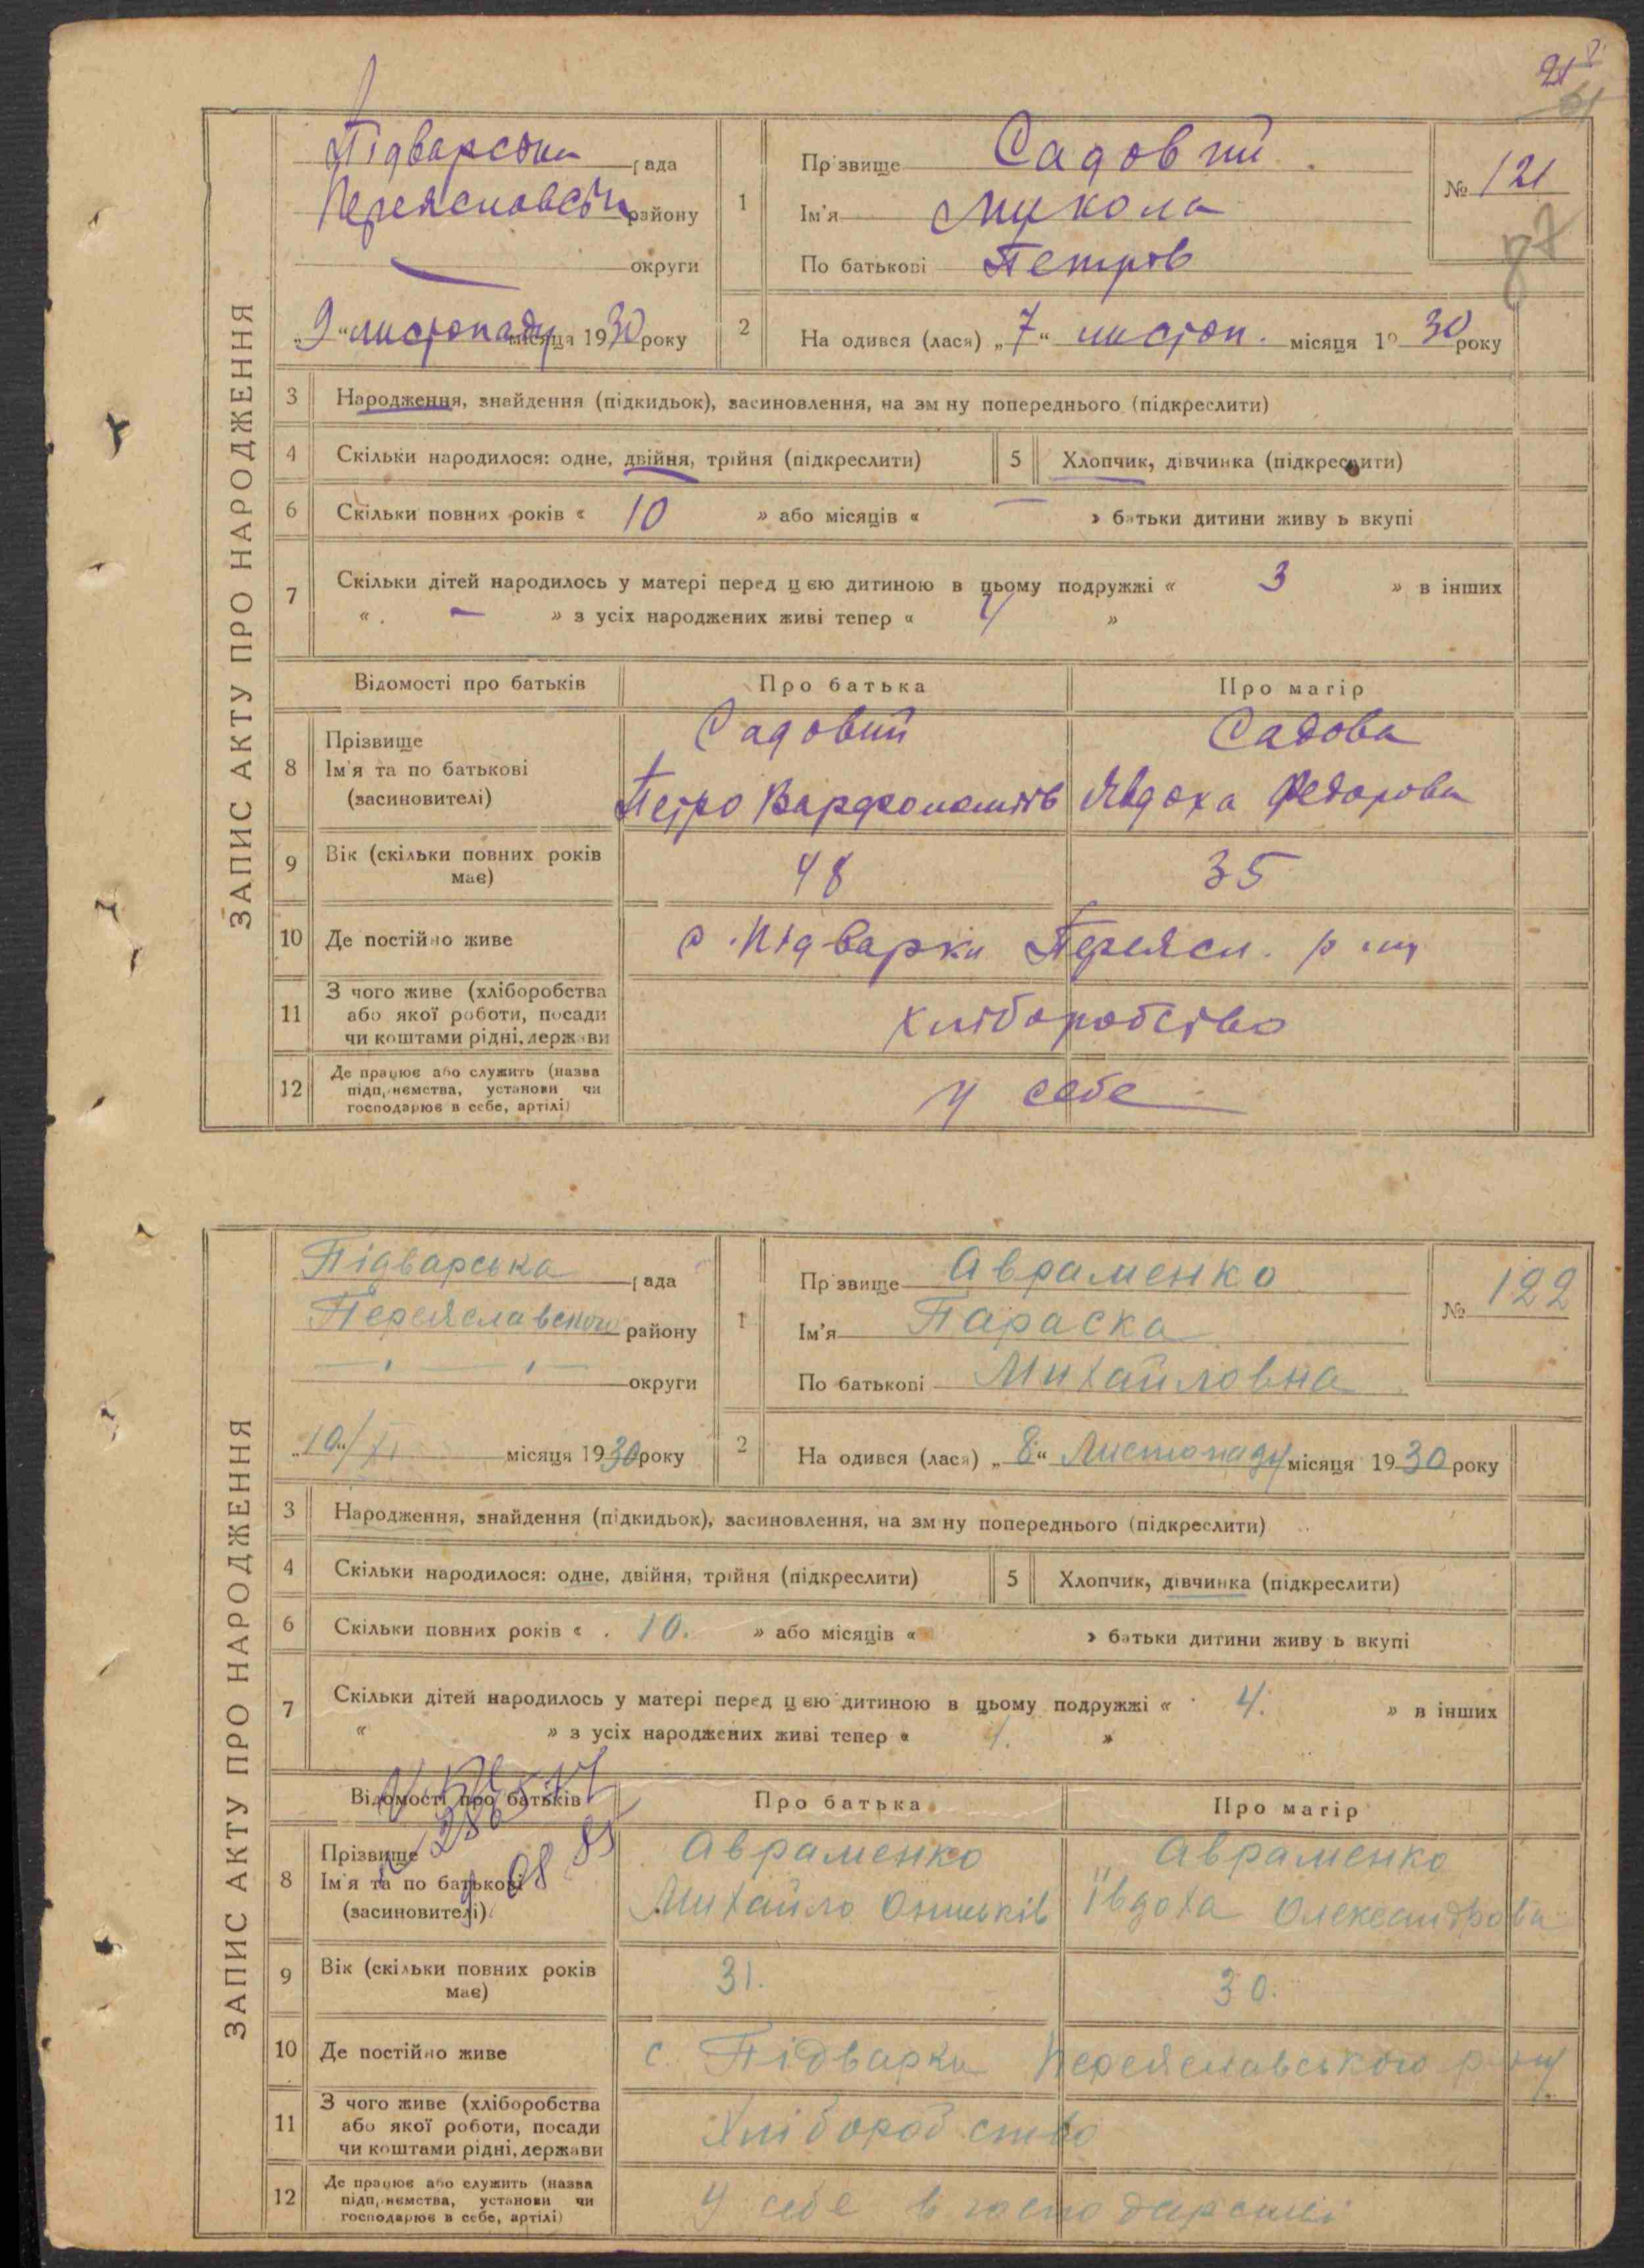 21
ЗАПИС АКТУ ПРО НАРОДЖЕННЯ
Підварська рада
Переяславськ району
округи
„9“ листопаду місяця 1930 року
1
Прізвище Садовий
Ім'я Микола
По батькові Петров
№ 121
87
2
На одився (лася) „7“ листоп. місяця 19 30 року
3 Народження, знайдення (підкидьок), засиновлення, на зм ну попереднього (підкреслити)
4 Скільки народилося: одне, двійня, трійня (підкреслити)
5 Хлопчик, дівчинка (підкреслити)
6 Скільки повних років « 10 » або місяців « — » батьки дитини живу ь вкупі
7 Скільки дітей народилось у матері перед ц єю дитиною в цьому подружжі « 3 » в інших
« — » з усіх народжених живі тепер « 4 »
Відомості про батьків
Про батька
Про матір
8 Прізвище
Ім'я та по батькові
(засиновителі)
Садовий
Петро Варфоломіїв
Садова
Явдоха Федорова
9 Вік (скільки повних років має)
48
35
10 Де постійно живе
с. Підварки Переясл. р-ну
11 З чого живе (хліборобства
або якої роботи, посади
чи коштами рідні, держави
хліборобство
12 Де працює або служить (назва
підп, иємства, установи чи
господарює в себе, артілі)
у себе
ЗАПИС АКТУ ПРО НАРОДЖЕННЯ
Підварська рада
Переяславського району
округи
„10“/XI місяця 1930 року
1
Прізвище Авраменко
Ім'я Параска
По батькові Михайловна
№ 122
2
На одився (лася) „8“ Листопаду місяця 1930 року
3 Народження, знайдення (підкидьок), засиновлення, на зм ну попереднього (підкреслити)
4 Скільки народилося: одне, двійня, трійня (підкреслити)
5 Хлопчик, дівчинка (підкреслити)
6 Скільки повних років « 10. » або місяців « » батьки дитини живу ь вкупі
7 Скільки дітей народилось у матері перед ц єю дитиною в цьому подружжі « 4. » в інших
« » з усіх народжених живі тепер « 1. »
Відомості про батьків
Про батька
Про матір
8 Прізвище
Ім'я та по батькові
(засиновителі)
Авраменко
Михайло
Авраменко
Івдоха Олександрова
9 Вік (скільки повних років має)
31.
30.
10 Де постійно живе
с. Підварки Переяславського р-ну
11 З чого живе (хліборобства
або якої роботи, посади
чи коштами рідні, держави
Хліборобство
12 Де працює або служить (назва
підп, иємства, установи чи
господарює в себе, артілі)
У себе в господарстві